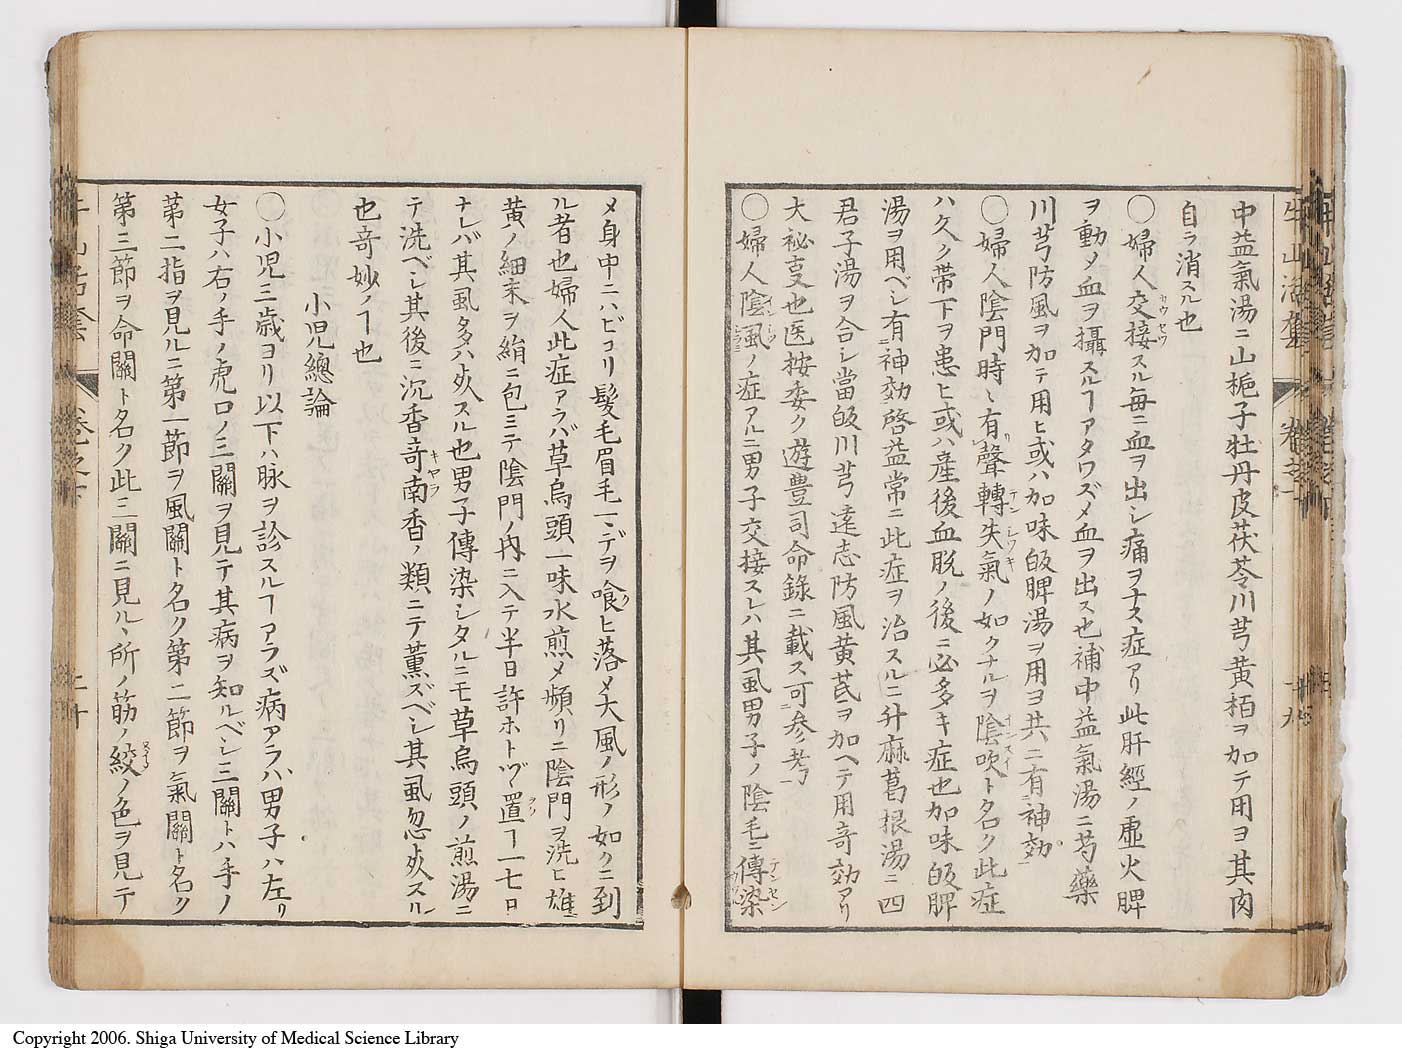 中益氣湯ニ山梔子牡丹皮茯苓川芎黄栢ヲ加テ用ヨ其肉
自ラ消スル也
〇婦人交接スル毎ニ血ヲ出シ痛ヲナス症アリ此肝經ノ虚火脾
ヲ動メ血ヲ攝スルヿアタワズメ血ヲ出ス也補中益氣湯ニ芍藥
川芎防風ヲ加テ用ヒ或ハ加味皈脾湯ヲ用ヨ共ニ有神効
〇婦人陰門時〻有聲轉失氣ノ如クナルヲ陰吹ト名ク此症
ハ久ク帯下ヲ患ヒ或ハ産後血脱ノ後ニ必多キ症也加味皈脾
湯ヲ用ベシ有神効啓益常ニ此症ヲ治スルニ升麻葛根湯ニ四
君子湯ヲ合シ當皈川芎遠志防風黄芪ヲ加ヘテ用竒効アリ
大祕叓也医按委ク遊豊司命錄ニ載ス可参考
〇婦人陰虱ノ症アルニ男子交接スレハ其虱男子ノ陰毛ニ傳染
メ身中ニハビコリ髪毛眉毛マデヲ喰ヒ落メ大風ノ形ノ如クニ到
ル者也婦人此症アラバ草烏頭一味水煎メ頻リニ陰門ヲ洗ヒ雄
黄ノ細末ヲ絹ニ包ミテ陰門ノ内ニ入テ半日許ホトヅヽ置ヿ一七日
ナレバ其虱多ハ死スル也男子傳染シタルニモ草烏頭ノ煎湯ニ
テ洗ベシ其後ニ沉香竒南香ノ類ニテ薫ズベシ其虱忽死スル
也竒妙ノヿ也
小児總論
〇小児三歳ヨリ以下ハ脉ヲ診スルヿアラズ病アラハ男子ハ左リ
女子ハ右ノ手ノ虎口ノ三關ヲ見テ其病ヲ知ルベシ三關トハ手ノ
苐二指ヲ見ルニ第一節ヲ風關ト名ク第二節ヲ氣關ト名ク
第三節ヲ命關ト名ク此三關ニ見ルヽ所ノ筋ノ絞ノ色ヲ見テ
Copyright 2006. Shiga University of Medical Science Library